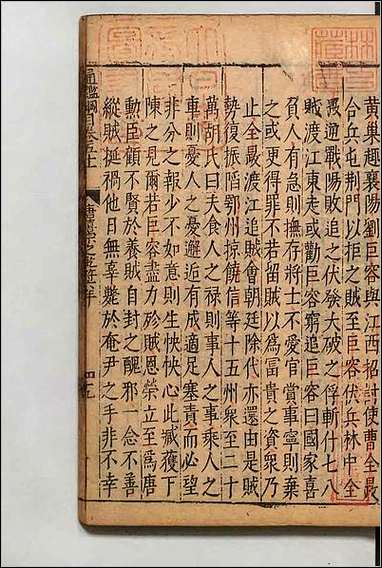 黄巢趣襄陽劉巨容與江西招討使曹全晸
合兵屯荆門以拒之賊至巨容伏兵林中全
晸逆戰陽敗追之伏發大破之俘斬什七八
賊渡江東走或勸巨容窮追巨容曰國家喜
負人有急則撫存將士不愛官賞事寧則棄
之或更得罪不若留賊以爲冨貴之資衆乃
止全晸渡江追賊會朝廷除代亦還由是賊
勢復振陷鄂州掠饒信等十五州衆至二十
萬胡氏曰夫食人之禄則事人之事乘人之
車則憂人之憂邂逅有成適足塞責而必望
非分之報少不如意則生怏怏心此臧獲下
陳之見爾若巨容盡力殄賊恩榮立至爲唐
勲臣顧不賢於養賊自封之醜邪一念不善
縱賊挺禍他日無辜斃於奄尹之手非不幸
通鑑綱目卷五十